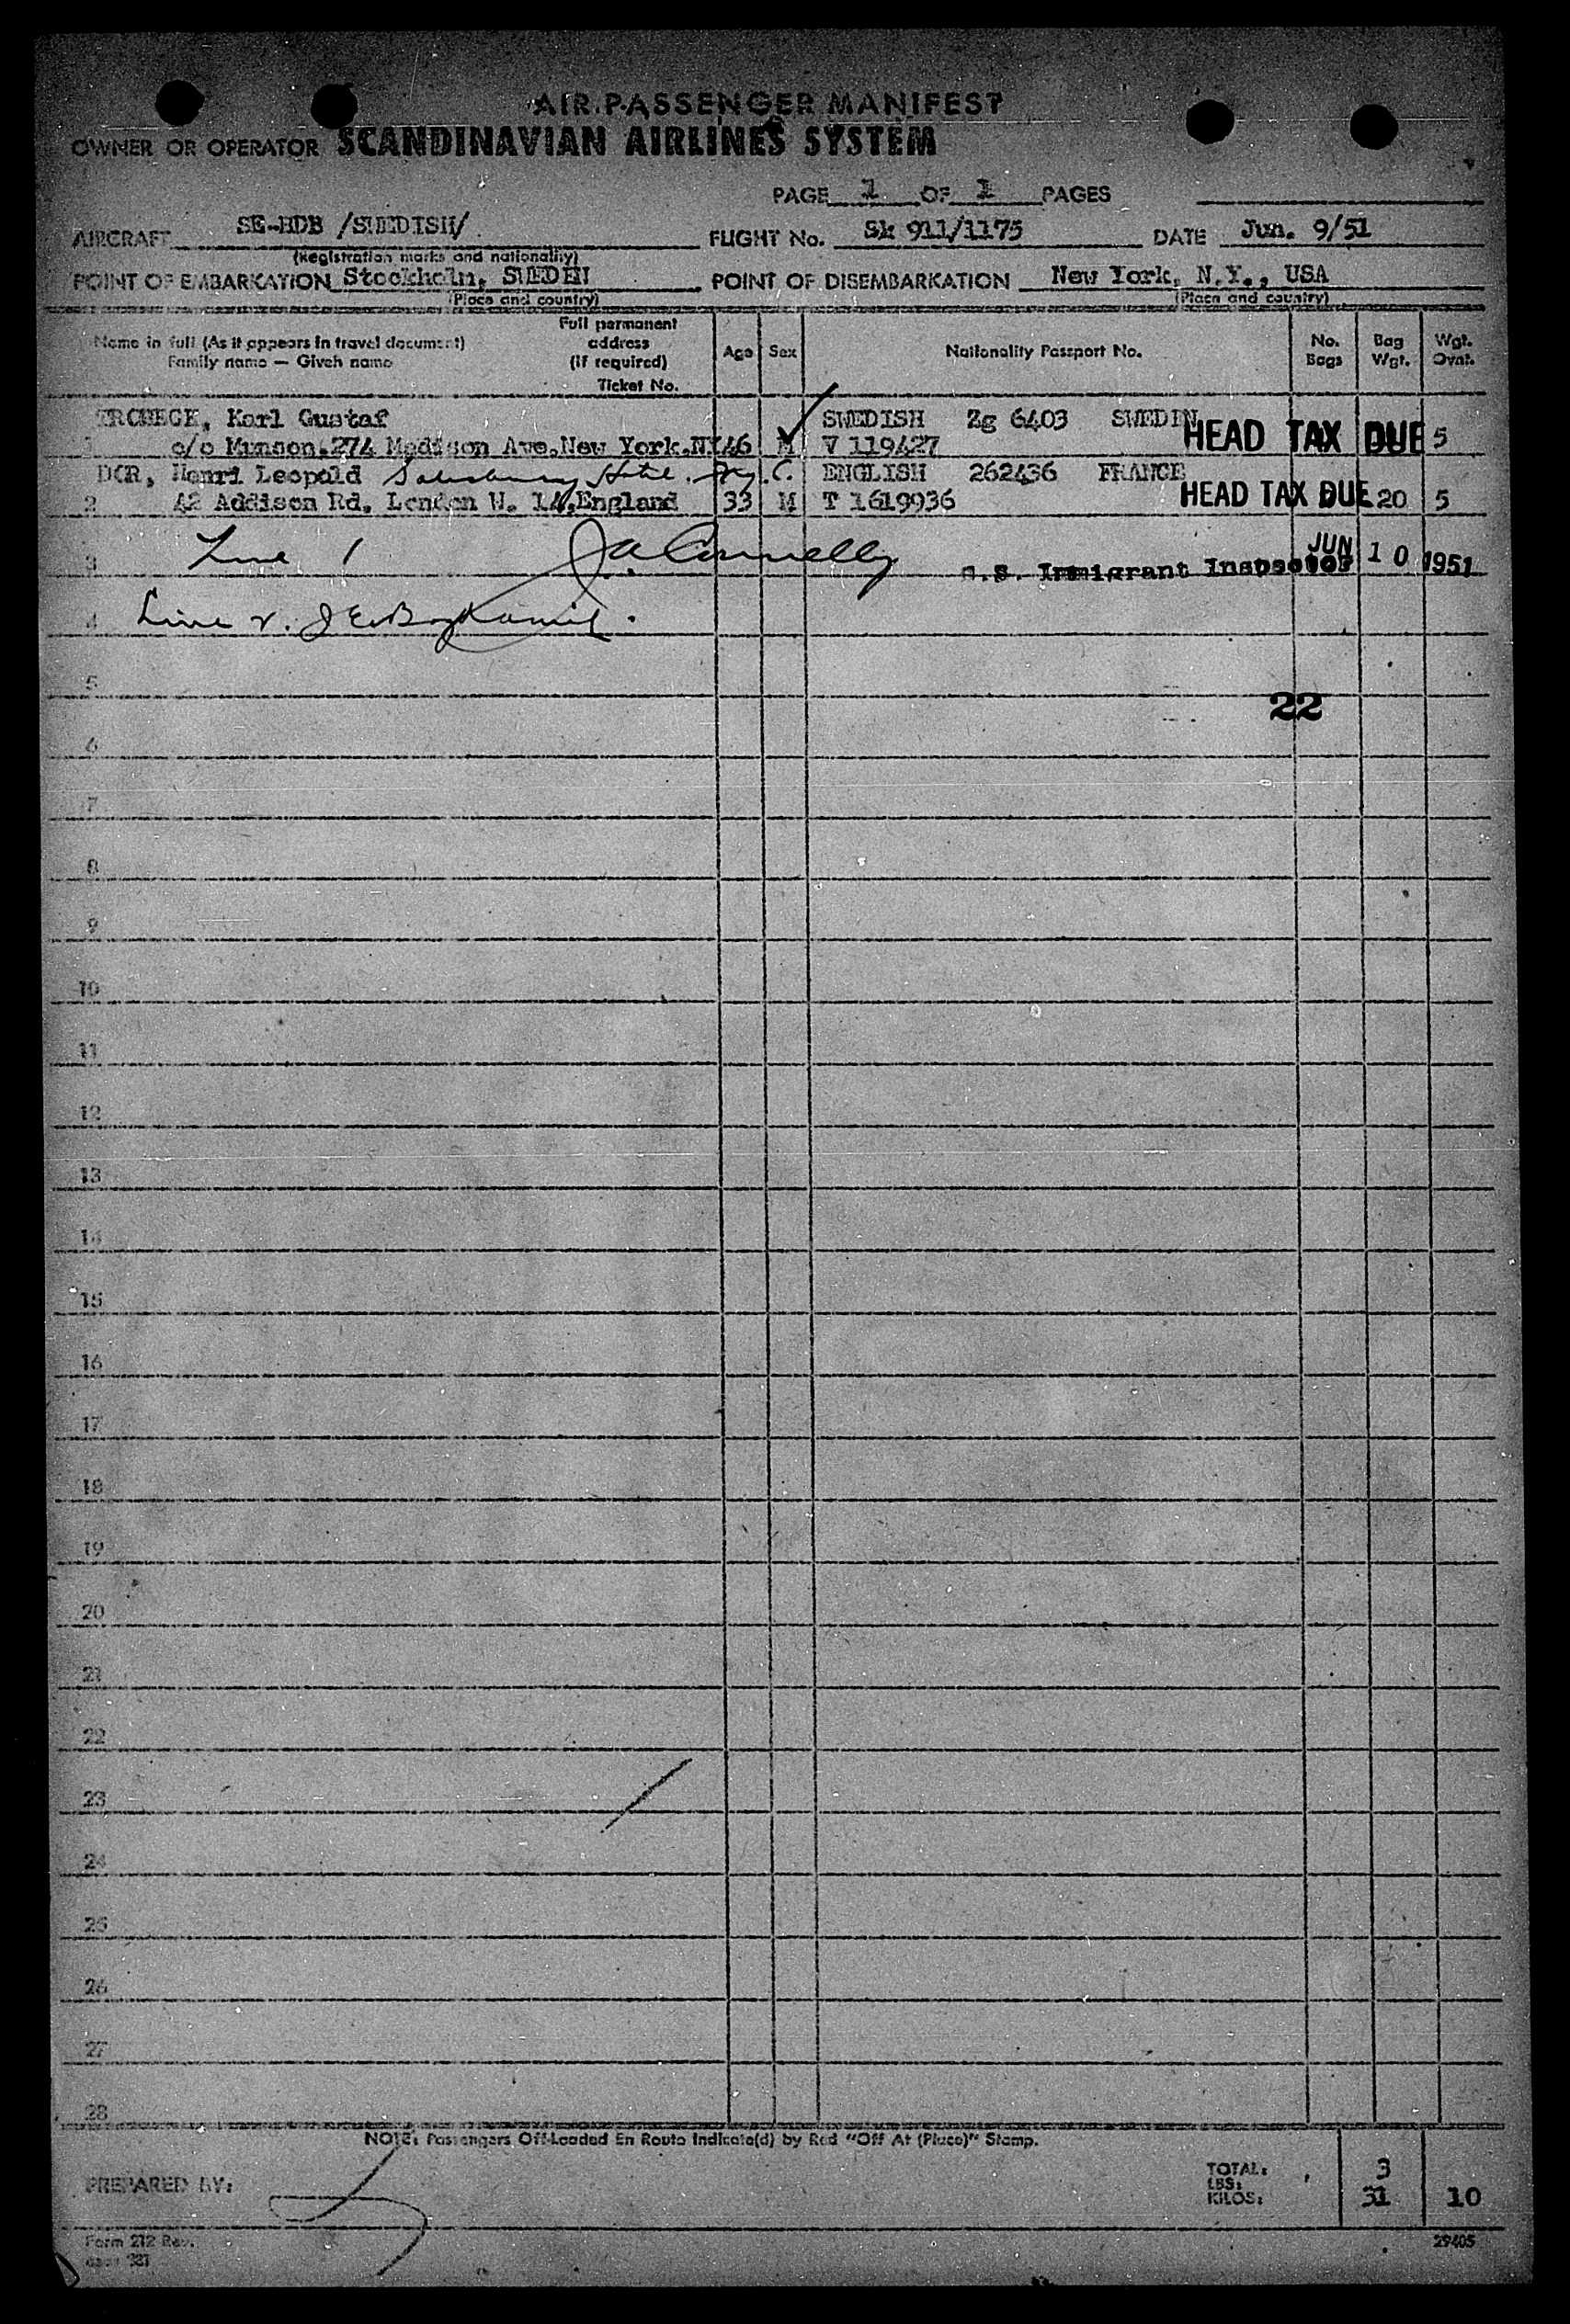 AIR PASSENGER MANIFEST
OWNER OR OPERATOR SCANDINAVIAN AIRLINES SYSTEM
PAGE 1 OF 1 PAGES
AIRCRAFT SE-BDB /SWEDISH/ FLIGHT No. Sk 911/1175 DATE Jun. 9/51
(Registration marks and nationality)
POINT OF EMBARKATION Stockholm, SWEDEN POINT OF DISEMBARKATION New York, N.Y., USA
(Place and country) (Place and country)
Name in full (As it appears in travel document) Family name — Given name
Full permanent address (If required) Ticket No.
Age Sex Nationality Passport No. No. Bags Bag Wgt. Wgt. Ovnt.
Karl Gustaf SWEDISH Zg 6403 SWEDEN
1 c/o Munson.274 Madison Ave.New York.NY 46 M V 119427 HEAD TAX DUE 5
Henri Leopold Salisbury Hotel. ENGLISH 262436 FRANCE
2 42 Addison Rd. London W. 14,England 33 M T 1619936 HEAD TAX DUE 20 5
3 Line 1 J.A. Connelly U.S. Immigrant Inspector JUN 10 1951
4 Line 2.
5
22
6
7
8
9
10
11
12
13
14
15
16
17
18
19
20
21
22
23
24
25
26
27
28
NOTE: Passengers Off-Loaded En Route Indicate(d) by Red "Off At (Place)" Stamp.
PREPARED BY:
TOTAL: 3
LBS:
KILOS: 31 10
Form 212 Rev. 29405